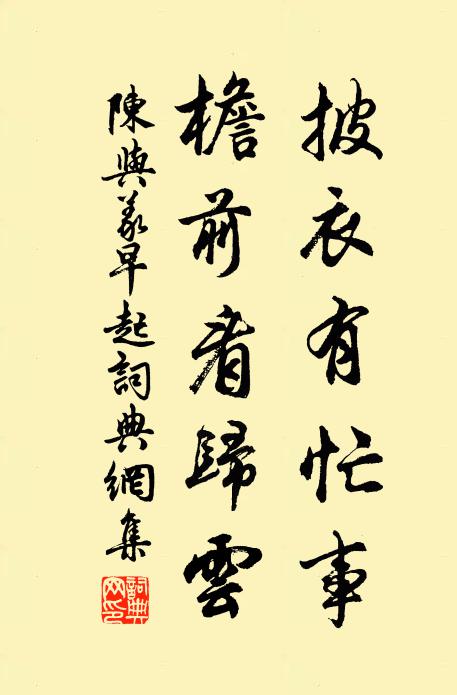 披衣有忙事
檐前看歸雲
陳與義早起詞典網集
詞典網印